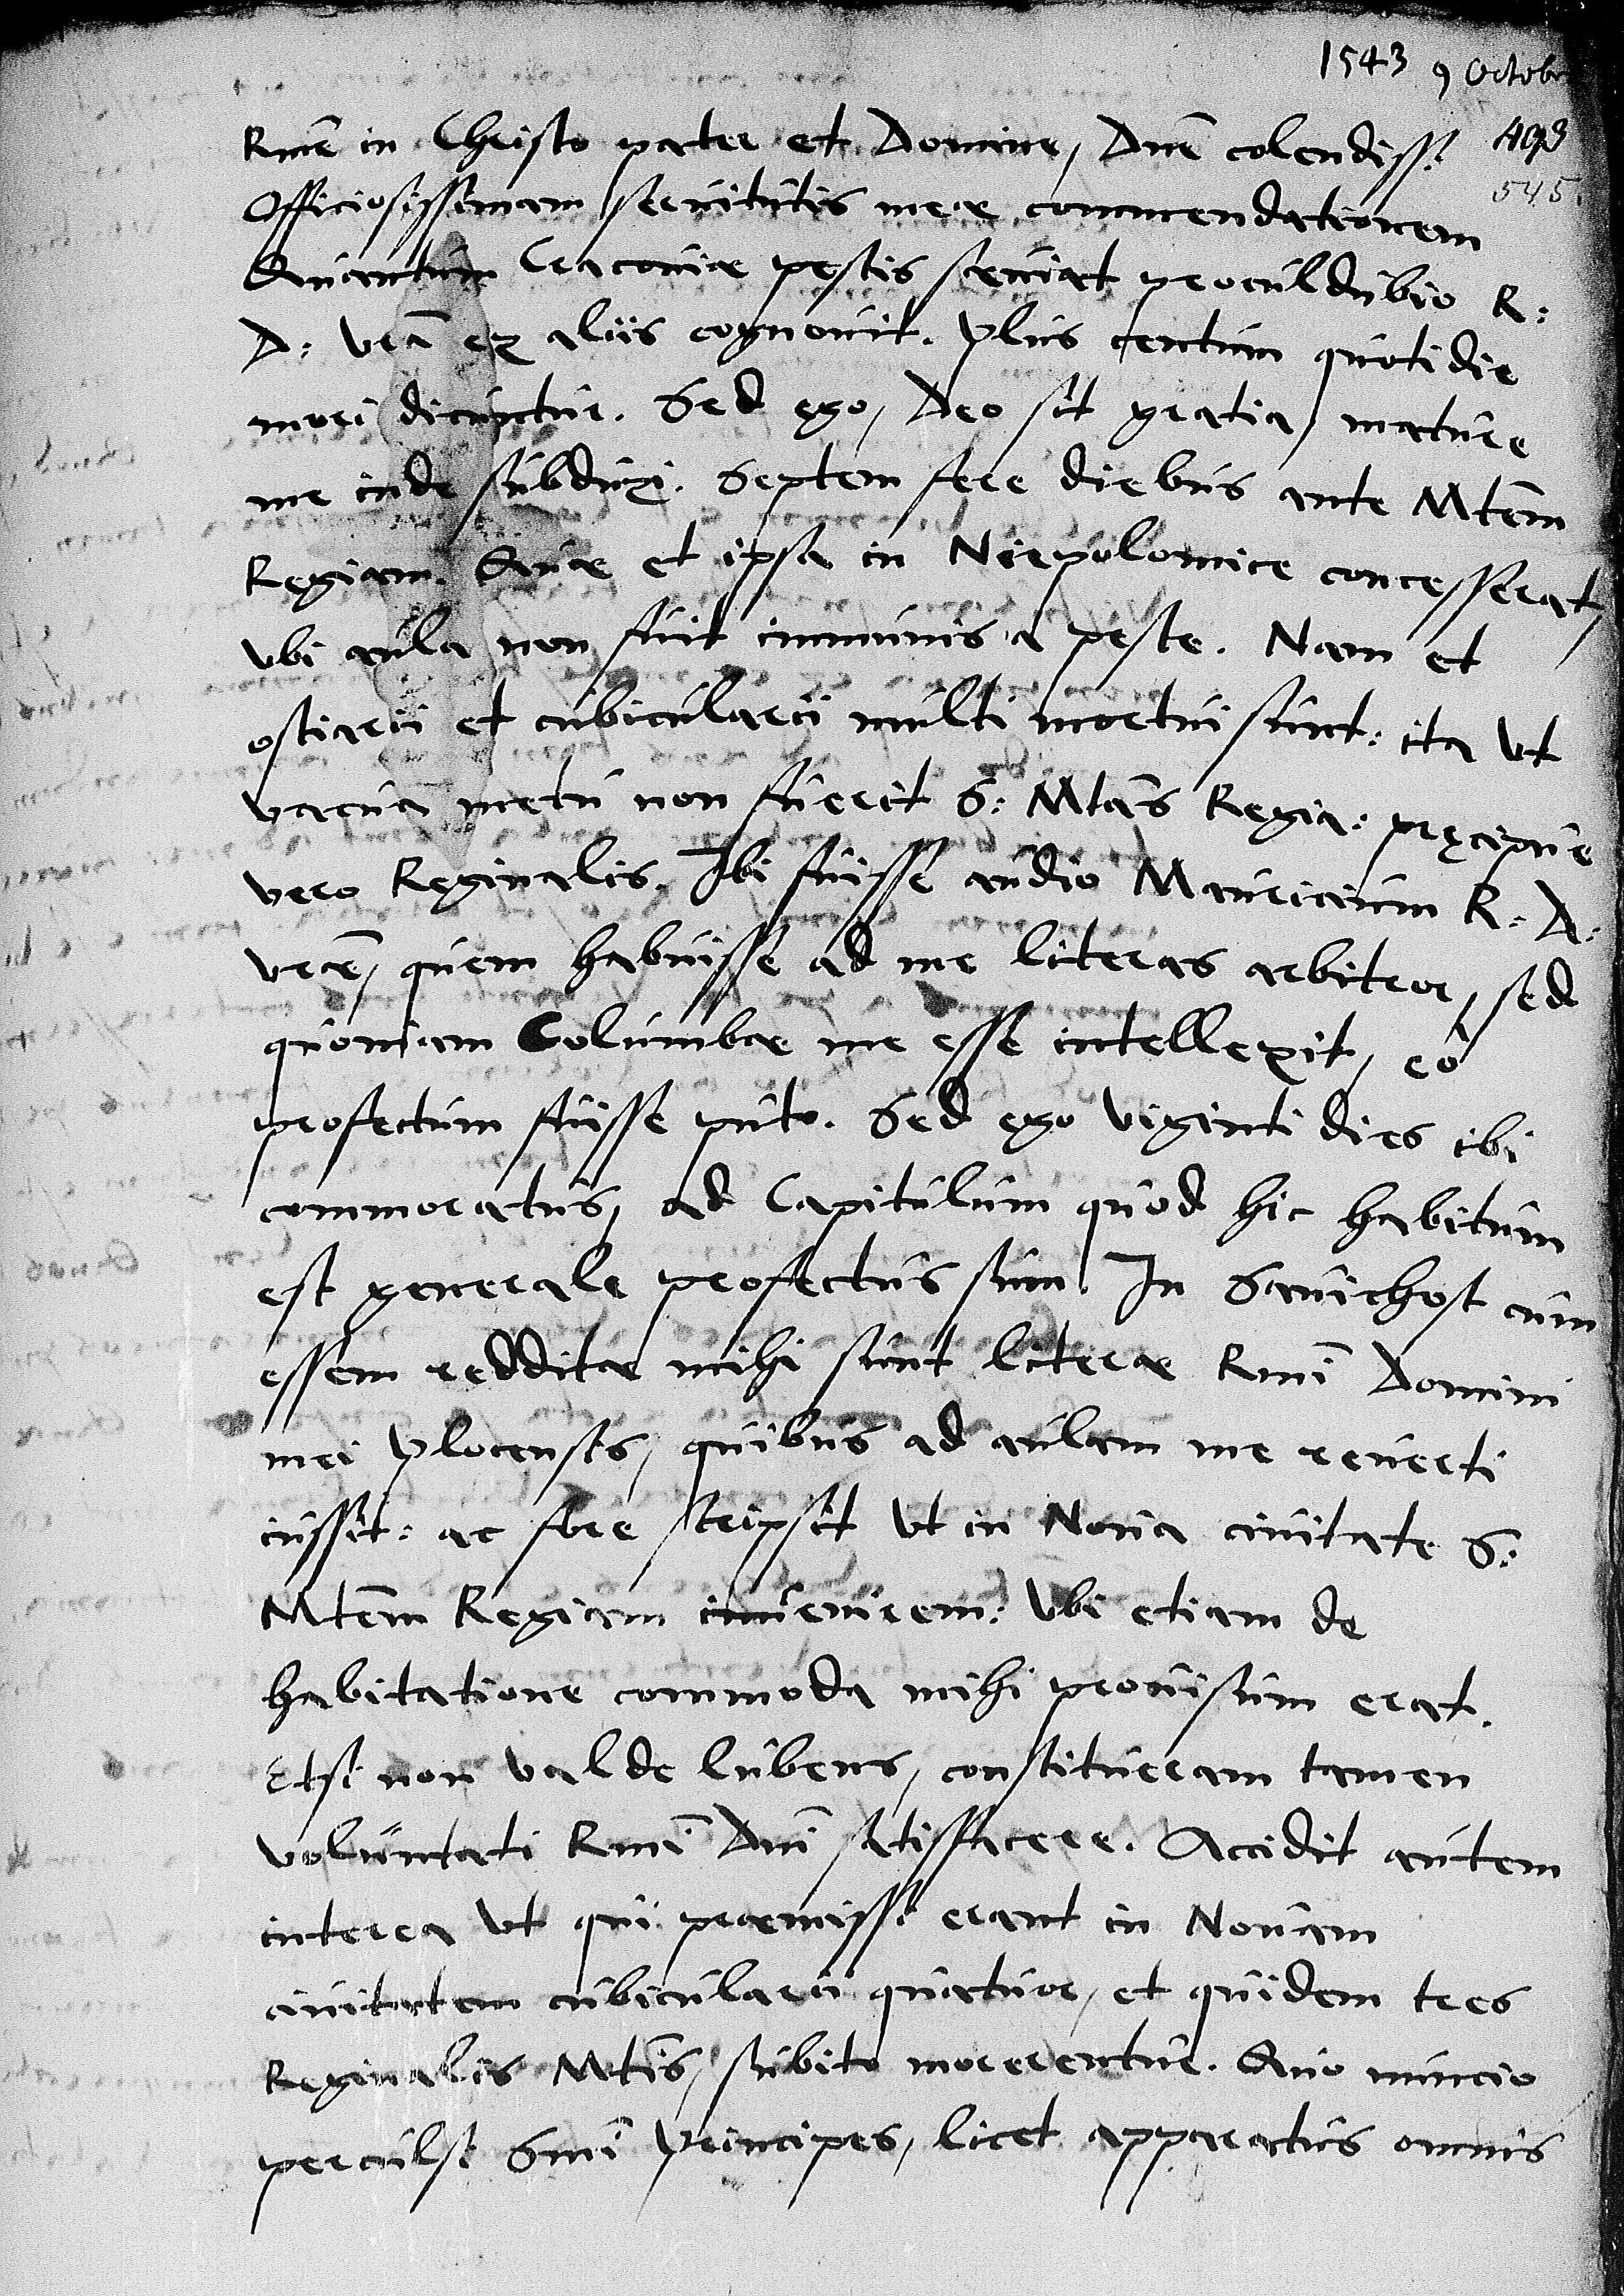 1543 9 Octobr
Rme in Christo pater et Domine, Dne colendiss:
493
545.
Officiosissimam servitutis meae commendationem
Quantum Cracoviae pestis saeviat proculdubio R:
D: vra ex aliis cognovit. Plus centum quotidie
mori dicuntur. Sed ego, Deo sit gratia, mature
me inde subduxi. Septem fere diebus ante Mtem
Regiam. Quae et ipsa in Niepolomice concesserat,
vbi aula non fuit immunis a peste. Nam et
ostiarii et cubicularii multi mortui sunt: ita vt
vacua metu non fuerit S: Mtas Regia: pręcipue
vero Reginalis. Ibi fuisse audio Mauricium R: D:
vrae, quem habuisse ad me literas arbitror, sed
quoniam Columbae me esse intellexit, eò
profectum fuisse puto. Sed ego viginti dies ibi
commoratus, ad Capitulum quod hic habitum
est generale profectus sum. In Savichost cum
essem redditae mihi sunt literae Rmi Domini
mei Plocensis, quibus ad aulam me reverti
iussit: ac fore scripsit vt in Nova civitate S:
Mtem Regiam invenirem: Vbi etiam de
habitatione commoda mihi provisum erat.
Etsi non valde lubens, constitueram tamen
voluntati Rmi Dni satisfacere. Accidit autem
interea vt qui praemissi erant in Novam
civitatem cubicularii quatuor, et quidem tres
Reginalis Mtis, subito morerentur. Quo nuncio
perculsi Smi Principes, licet apparatus omnis